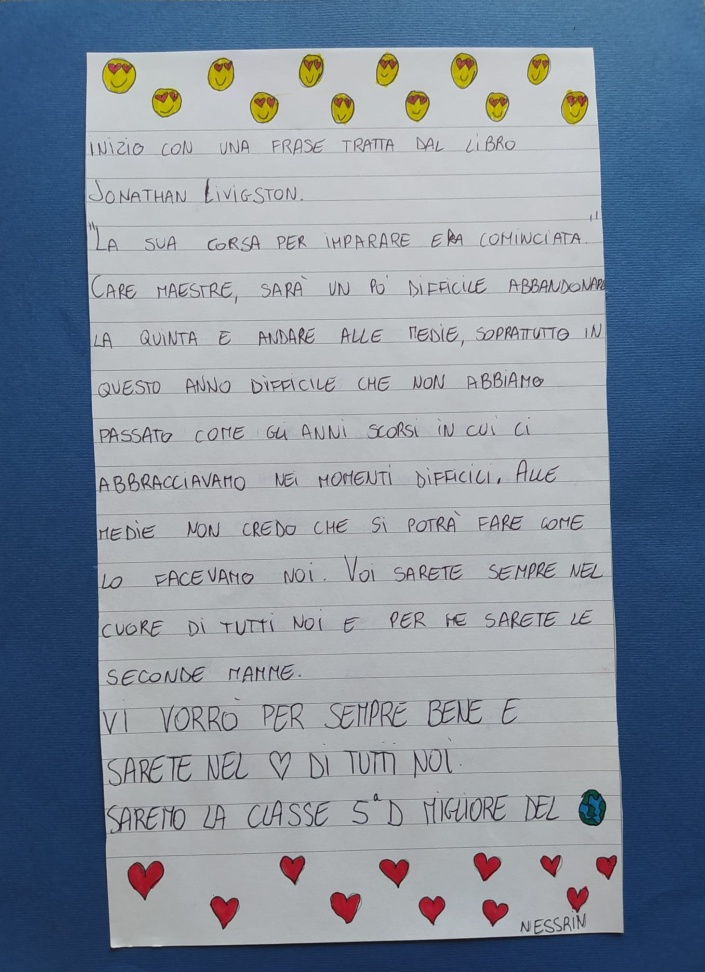 INIZIO CON UNA FRASE TRATTA DAL LIBRO
JONATHAN LIVIGSTON.
"LA SUA CORSA PER IMPARARE ERA COMINCIATA."
CARE MAESTRE, SARÀ UN PO' DIFFICILE ABBANDONARE
LA QUINTA E ANDARE ALLE MEDIE, SOPRATTUTTO IN
QUESTO ANNO DIFFICILE CHE NON ABBIAMO
PASSATO COME GLI ANNI SCORSI IN CUI CI
ABBRACCIAVAMO NEI MOMENTI DIFFICILI. ALLE
MEDIE NON CREDO CHE SI POTRÀ FARE COME
LO FACEVAMO NOI. VOI SARETE SEMPRE NEL
CUORE DI TUTTI NOI E PER ME SARETE LE
SECONDE MAMME.
VI VORRÒ PER SEMPRE BENE E
SARETE NEL ♡ DI TUTTI NOI.
SAREMO LA CLASSE 5ª D MIGLIORE DEL
NESSRIN